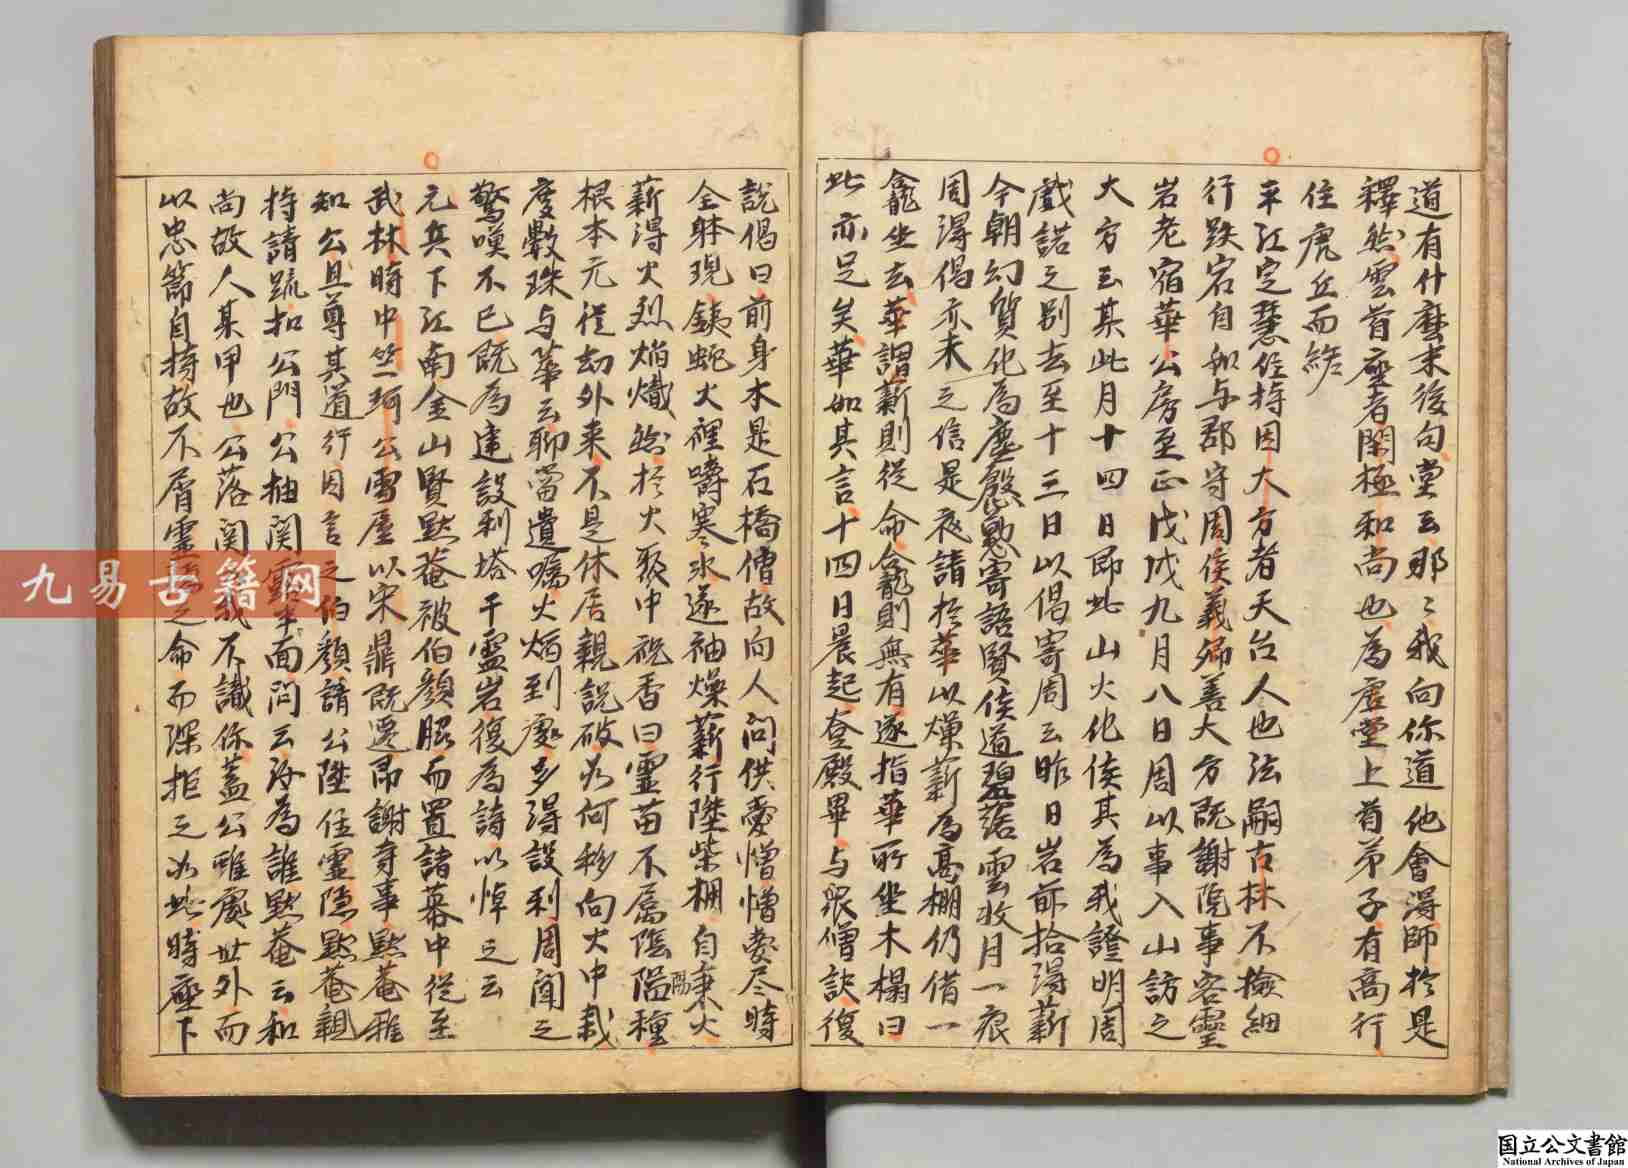 道有什麽末後句堂云那〻我向你道他會得師於是
釋然雲首座者閑極和尚也為虛堂上首弟子有高行
住虎丘而終
平江定慧住持因大方者天台人也法嗣古林不撿細
行跌宕自如与郡守周侯義卿善大方既謝院事客靈
岩老宿華公房至正戊戌九月八日周以事入山訪之
大方云某此月十四日即此山火化俟其為我證明周
戲諾之別去至十三日以偈寄周云昨日岩前拾得薪
今朝幻質化為塵殷懃寄語賢侯道碧落雲收月一痕
周得偈亦未之信是夜請於華以燥薪為高棚仍借一
龕坐去華謂薪則從命龕則無有遂指華所坐木榻曰
此亦足矣華如其言十四日晨起登殿畢与衆僧訣復
說偈曰前身本是石橋僧故向人間供愛憎憎愛尽時
全躰現鐵蛇火裡嚼寒氷遂袖燥薪行陞柴棚自秉火
薪得火烈焰熾然於火聚中祝香曰靈苗不属陰陽種
根本元從劫外来不是休居親說破如何移向火中栽
度數珠与華云聊當遺囑火焰到處多得設利周聞之
驚嘆不已既為建設利塔于靈岩復為詩以悼之云
元兵下江南金山賢默菴被伯顏脇而置諸幕中從至
武林時中竺珂公雪屋以宋鼎既遷帛謝寺事默菴雅
知公且尊其道行因言之伯顏請公陞住靈隠默菴親
持請疏扣公門公抽関露半面問云汝為誰默菴云和
尚故人某甲也公落関云我不識你蓋公雖處世外而
以忠節自持故不屑靈隠之命而深拒之如此時座下
九易古籍网
国立公文書館
National Archives of Japan